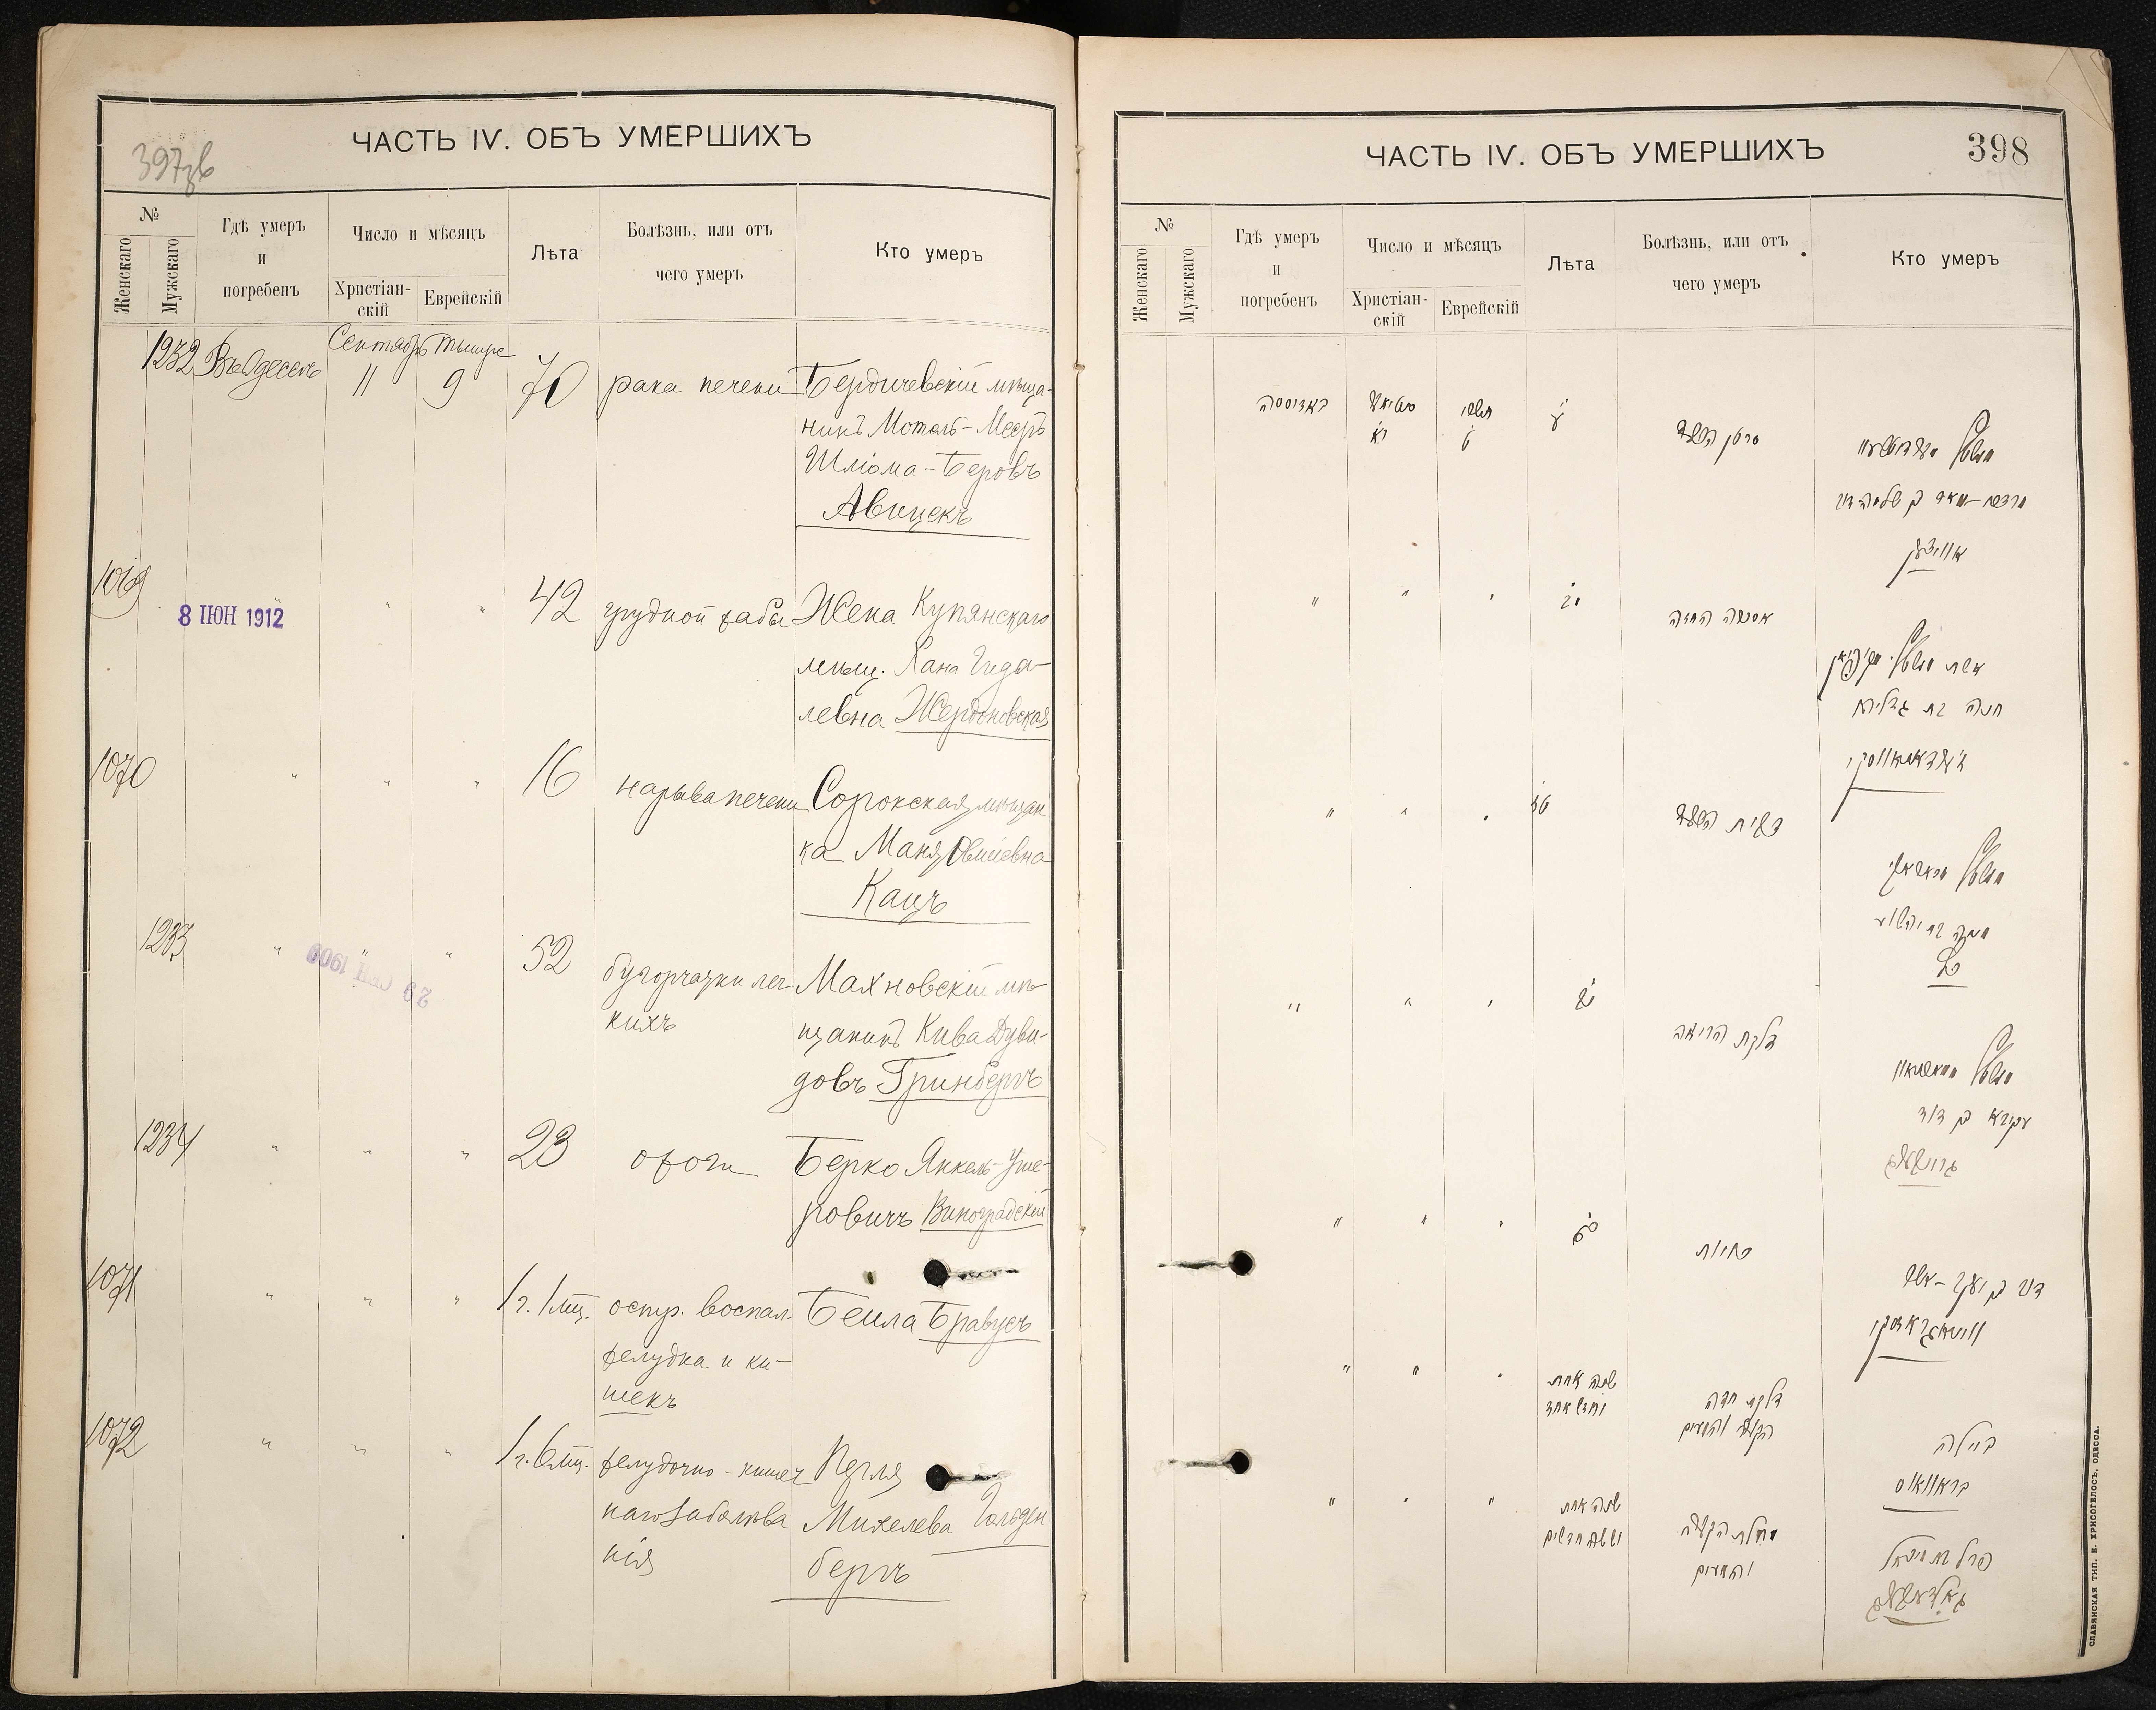 397зв
ЧАСТЬ IV. ОБЪ УМЕРШИХЪ
№
Женскаго
Мужскаго
Гдѣ умеръ
и
погребенъ
Число и мѣсяцъ
Христіан-
скій
Еврейскій
Лѣта
Болѣзнь, или отъ
чего умеръ
Кто умеръ
1232 Въ Одессѣ
Сентябр
11
Тишре
9
70
рака печени
Бердичевскій мѣща-
нинъ Мотель-Меєръ
Шліома-Беровъ
Авицекъ
1069
8 ІЮН 1912
" "
42
грудной жабы
Жена Купянскаго
мѣщ. Хана Гида-
левна Жердоновская
1070
" " "
16
нарыва печени
Сорокская мѣщан
ка Маня Овшіевна
Кацъ
1233
" " "
29 СЕН 1900
52
бугорчатки лег
кихъ
Махновскій мѣ-
щанинъ Кива Дуви-
довъ Гринбергъ
1234
" " "
23
ожоги
Берко Янкель-Уше-
ровичъ Виноградскій
1071
" " "
1 г. 1 мц.
остр. воспал.
желудка и ки-
шекъ
Бейла Бравусъ
1072
" " "
1 г. 6 мц.
желудочно-кишеч
наго заболѣва
нія
Перля
Михелева Гольден
бергъ
ЧАСТЬ IV. ОБЪ УМЕРШИХЪ
398
№
Женскаго
Мужскаго
Гдѣ умеръ
и
погребенъ
Число и мѣсяцъ
Христіан-
скій
Еврейскій
Лѣта
Болѣзнь, или отъ
чего умеръ
Кто умеръ
באדוססה
יא
תשרי
ט
ע
סרטן הכבד
מרדכי-מאיר בן שלמה דוב
" " "
אשת
חנה בת גדליה
" " "
הכבד
כץ
" " "
נב
דלקת הריאה
עקיבא בן דוד
גרינבערג
" " "
כג
כויות
דוב בן יעקב-אשר
ווינאגראדסקי
" " "
שנה אחת
וחדש אחד
דלקת חדה
הקיבה והמעים
ביילה
בראוואוס
" " "
שנה אחת
וששה חדשים
מחלת הקיבה
והמעים
פרל בת מיכאל
גאלדענבערג
СЛАВЯНСКАЯ ТИП. Е. ХРИСОГЕЛОСЪ, ОДЕССА.